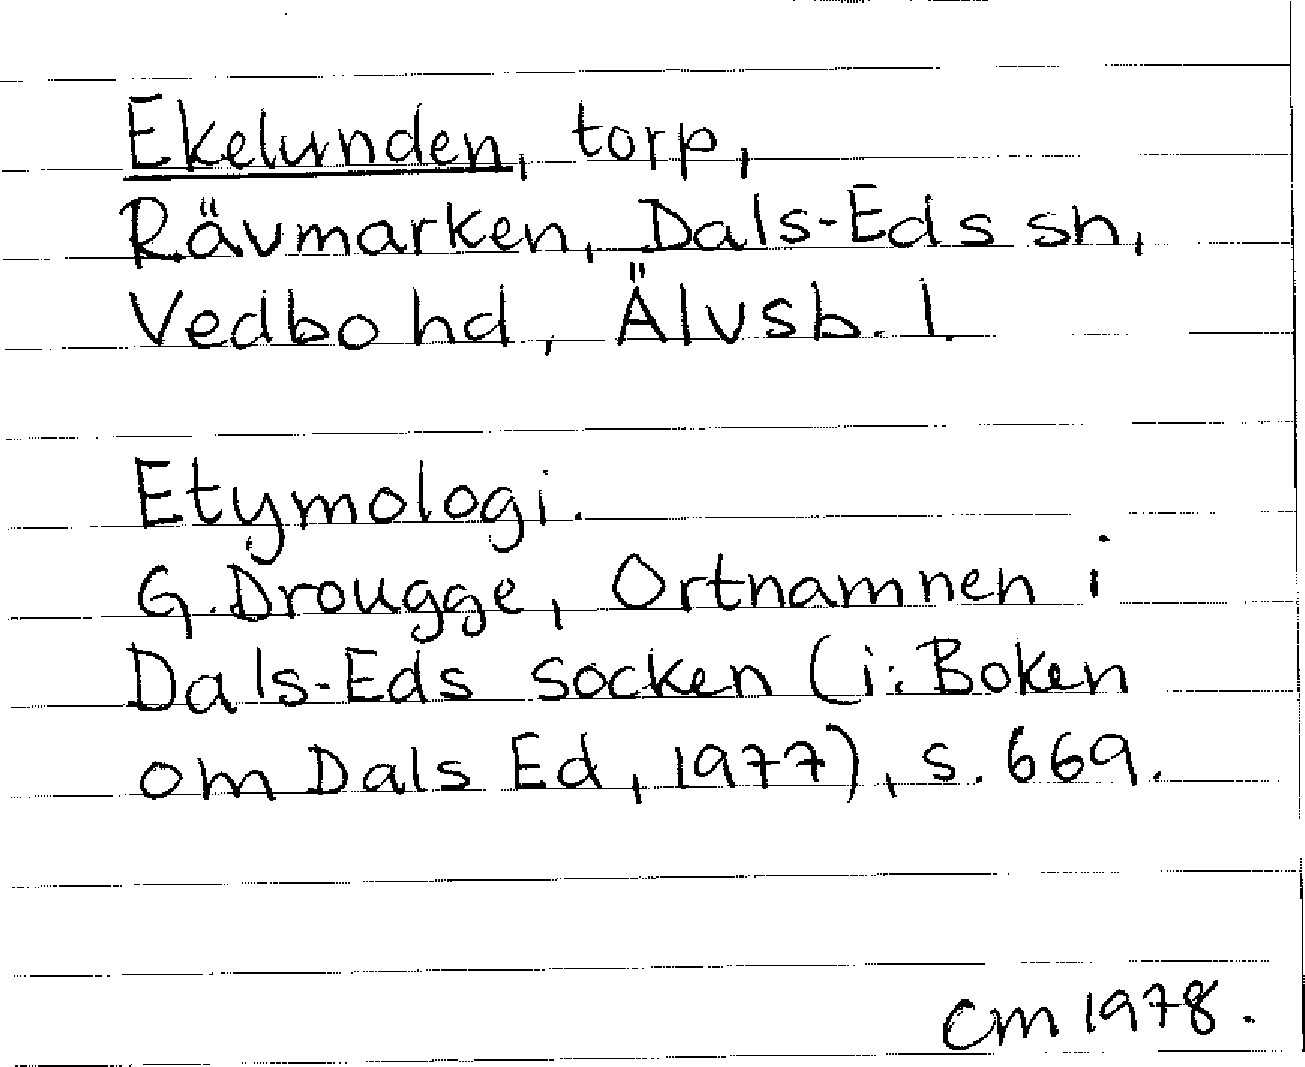 Ekelunden, torp,
Rävmarken, Dals-Eds sn,
Vedbo hd, Älvsb. l.
Etymologi.
G. Drougge, Ortnamnen i
Dals-Eds socken (i: Boken
om Dals Ed, 1977), s. 669.
CM 1978.